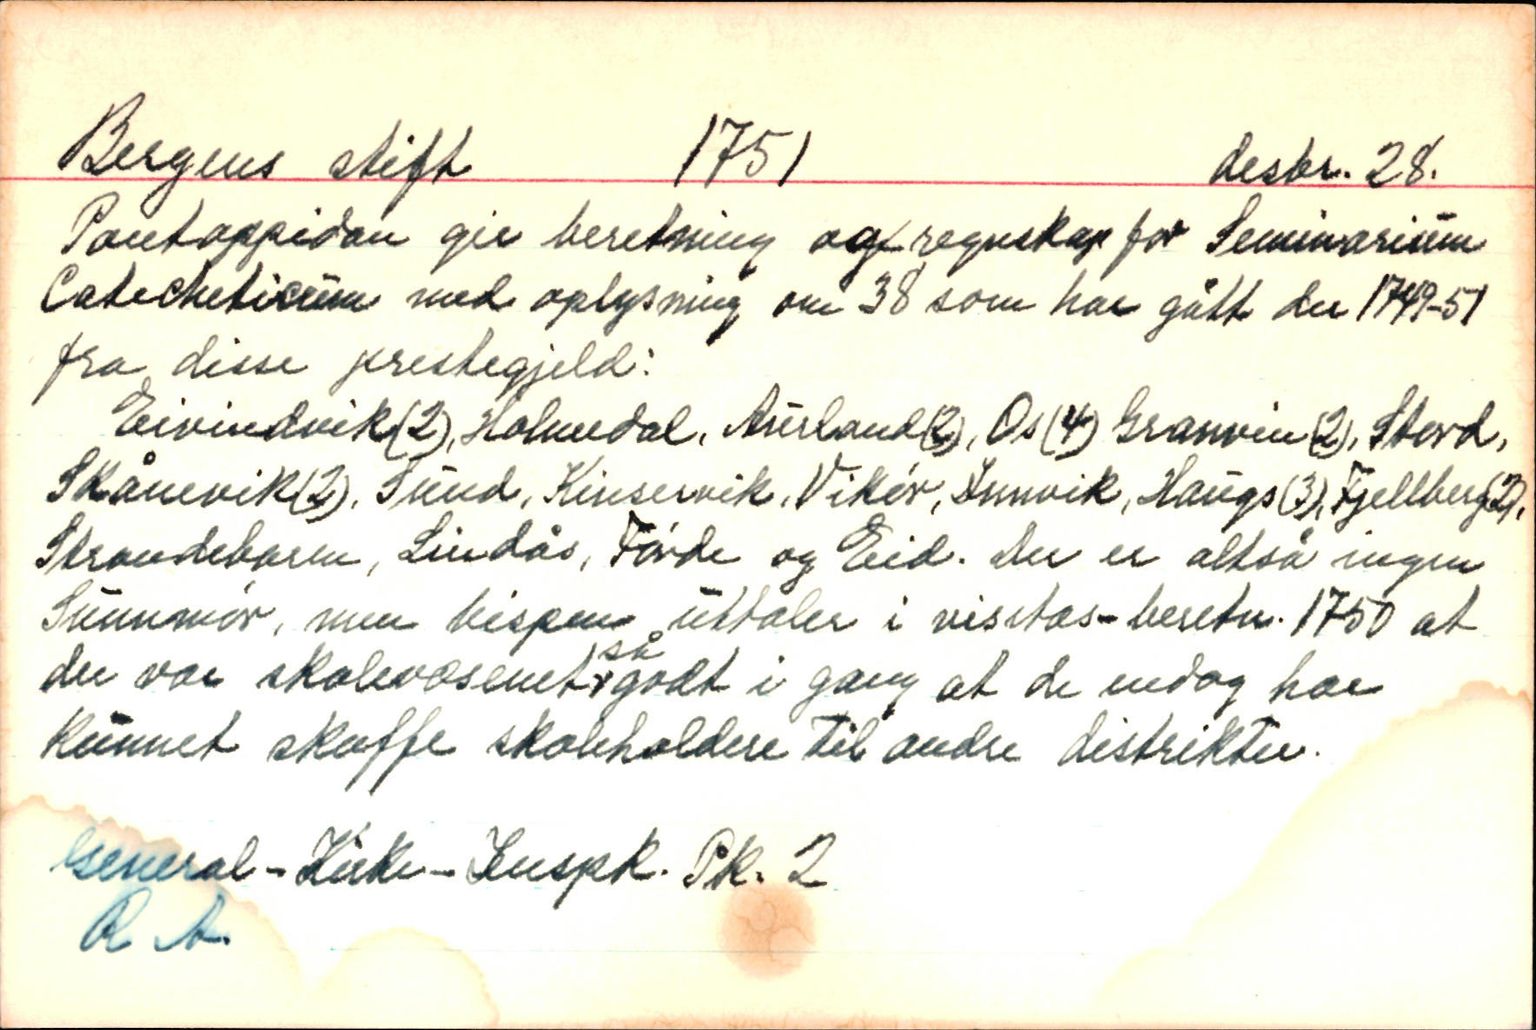 Bergens stift 1751 desbr. 28.
Pontoppidan gir beretning og regnskap for Seminarium
Catecheticum med oplysning om 38 som har gått der 1749-51
fra disse prestegjeld:
Eivindvik (2), Holmedal, Aurland (2), Os (4) Granvin (2), Stord,
Skånevik (2), Sund, Kinservik, Vikør, Innvik, Haugs (3), Fjellberg (2),
Strandebarm, Lindås, Førde og Eid. Der er altså ingen
Sunnmør, men bispen uttaler i visitas-beretn. 1750 at
der var skolevæsenet så godt i gang at de endog har
kunnet skaffe skoleholdere til andre distrikter.
General-Kirke-Inspk. Pk. 2
R A.